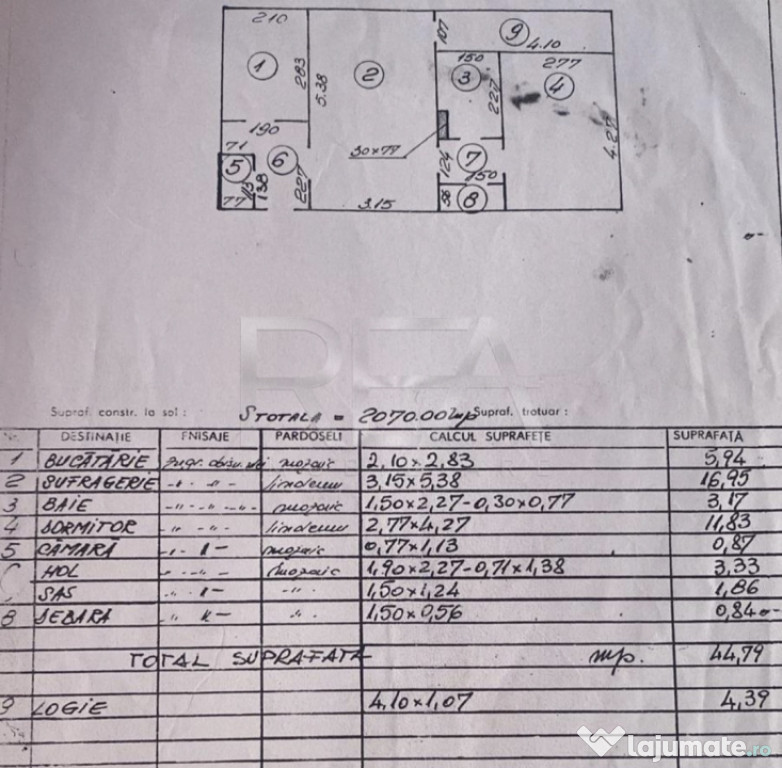 210
107
9
4.10
1
283
5.38
2
150
3
277
4
227
4.27
190
71
6
30x77
124
7
5
113
138
227
150
77
3.15
56
8
Supraf. constr. la sol :
STOTALA = 2070.00mp
Supraf. trotuar :
DESTINAȚIE FNISAJE PARDOSELI CALCUL SUPRAFEȚE SUPRAFAȚĂ
1 BUCĂTĂRIE mozaic 2,10×2,83 5,94
2 SUFRAGERIE -"- linoleum 3,15×5,38 16,95
3 BAIE -"- mozaic 1,50×2,27-0,30×0,77 3,17
4 DORMITOR -"- linoleum 2,77×4,27 11,83
5 CĂMARĂ mozaic 0,77×1,13 0,87
HOL -"- mozaic 1,90×2,27-0,71×1,38 3,33
SAS -"- 1,50×1,24 1,86
8 DEBARA -"- 1,50×0,56 0,84
TOTAL SUPRAFATA mp. 44,79
9 LOGIE 4,10×1,07 4,39
REA
lajumate.ro